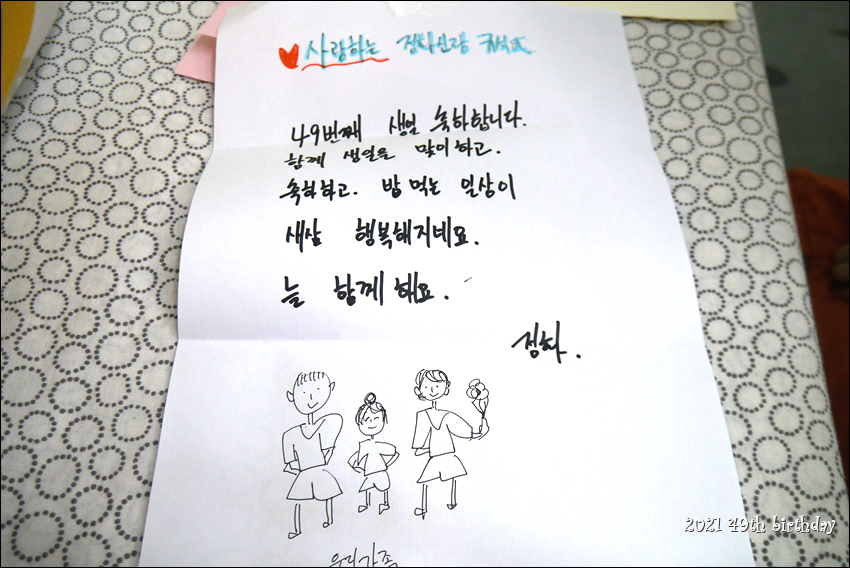 사랑하는 정화신랑
49번째 생일 축하합니다.
함께 생일을 맞이하고.
축하하고. 밥 먹는 일상이
새삼 행복해지네요.
늘 함께해요.
정화.
우리가족
2021 49th birthday